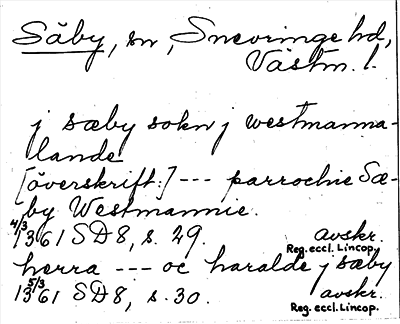 Säby, sn, Snevringe hd,
Västm. l.
j sæby sokn j westmanna-
lande
[överskrift:] --- parrochie Sæ-
by Westmannie.
4/3
1361 SD8, s. 29. avskr.
Reg. eccl. Lincop.
herra --- oc haralde j sæby
5/3
1361 SD8, s. 30. avskr.
Reg. eccl. Lincop.